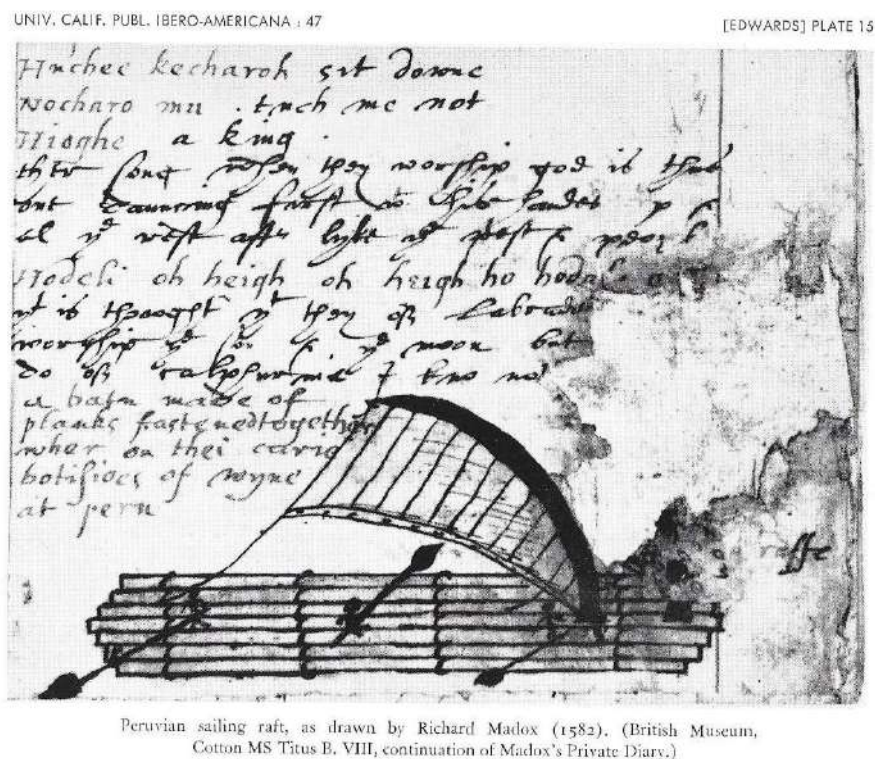 UNIV. CALIF. PUBL. IBERO-AMERICANA : 47
[EDWARDS] PLATE 15
Hinchee kecharoh sit downe
Nocharo mu . tuch me not
Hioghe a king .
ther song when they worship god is thus
one dauncing first wt his handes
al ye rest after lyke ye prest & peopl
Hodeli oh heigh oh heigh ho
yt is thowght yt they of Labrador
worship ye son & ye moon but
do of calphurnia I kno not
a made of
planks fastenedtogether
wher on thei carie
botisioes of wyne
at peru
Peruvian sailing raft, as drawn by Richard Madox (1582). (British Museum,
Cotton MS Titus B. VIII, continuation of Madox's Private Diary.)